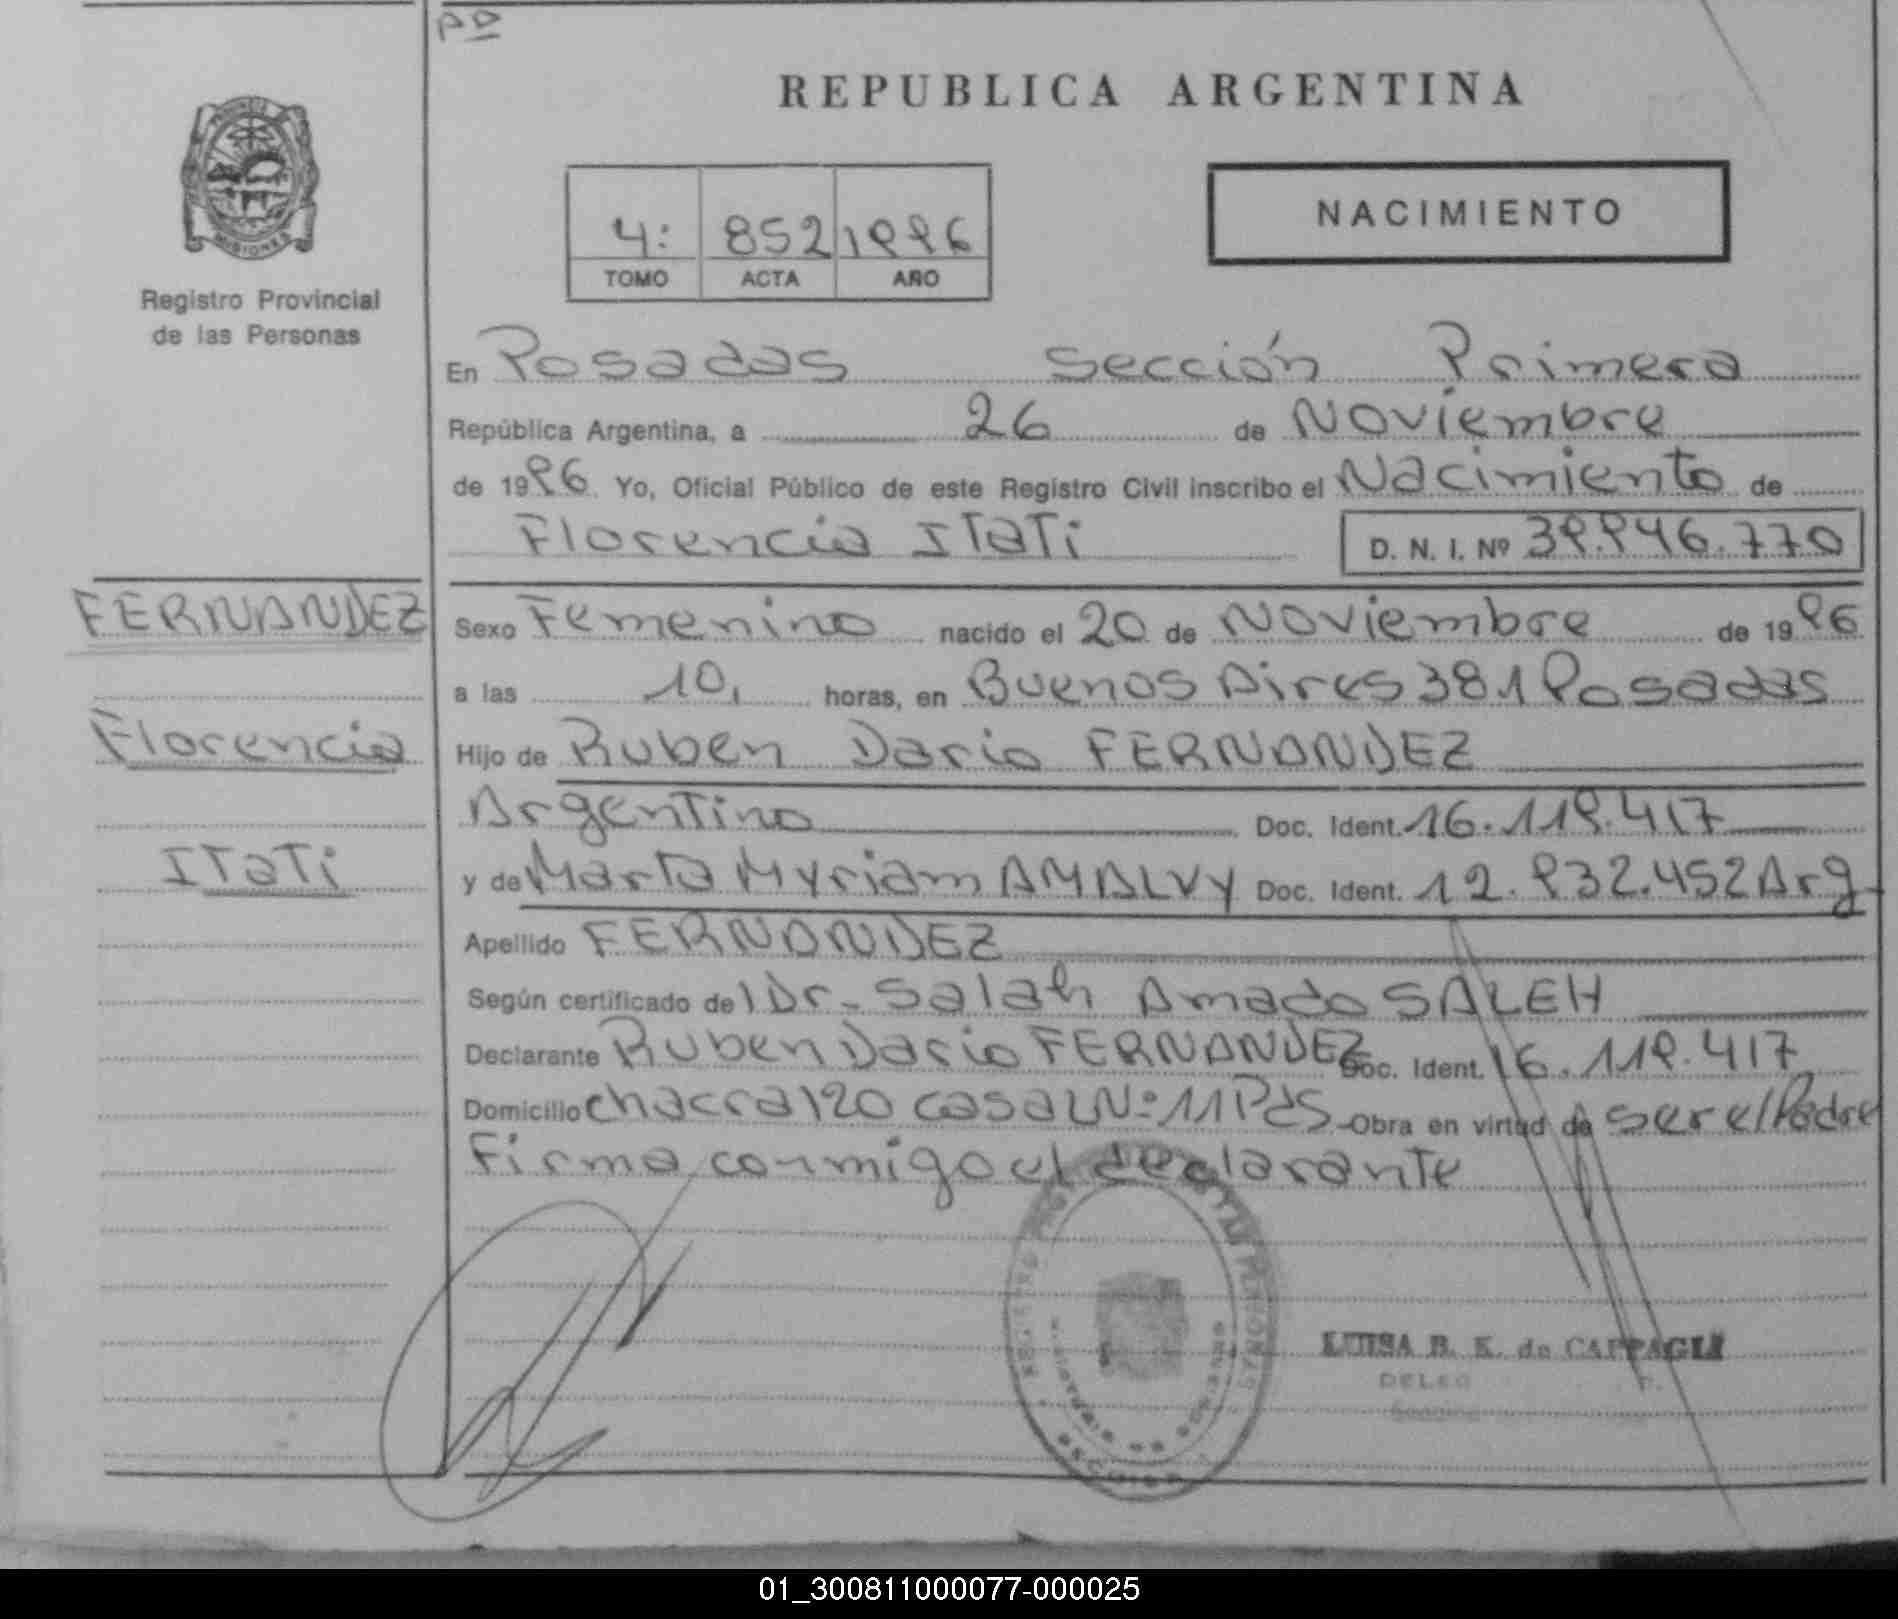 PD
REPUBLICA ARGENTINA
MISIONES
Registro Provincial
de las Personas
4: 852 1996
TOMO ACTA AÑO
NACIMIENTO
En Posadas Sección Primera
República Argentina, a 26 de Noviembre
de 1996 Yo, Oficial Público de este Registro Civil inscribo el Nacimiento de
Florencia Itati D. N. I. Nº 39.946.770
FERNANDEZ
Florencia
Itati
Sexo Femenino nacido el 20 de Noviembre de 1996
a las 10, horas, en Buenos Aires 381 Posadas
Hijo de Ruben Dario FERNANDEZ
Argentino Doc. Ident. 16.119.417
y de Marta Myriam AMALVY Doc. Ident. 12.932.452 Arg
Apellido FERNANDEZ
Según certificado de l Dr. Salah Amado SALEH
Declarante Ruben Dario FERNANDEZ Doc. Ident. 16.119.417
Domicilio chacra 120 casa N:º 11 Pds Obra en virtud de ser el Padre
Firma conmigo el declarante
LUISA B. K. de CAPPAGLI
01_300811000077-000025